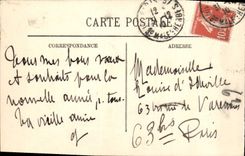 CARTE POSTALE
CORRESPONDANCE
ADRESSE
Tous mes bons vœux
et souhaits pour la
nouvelle année p. tous.
ta vieille amie
Mademoiselle
Louise d'
63 bis rue de Varenne
63 bis
Paris